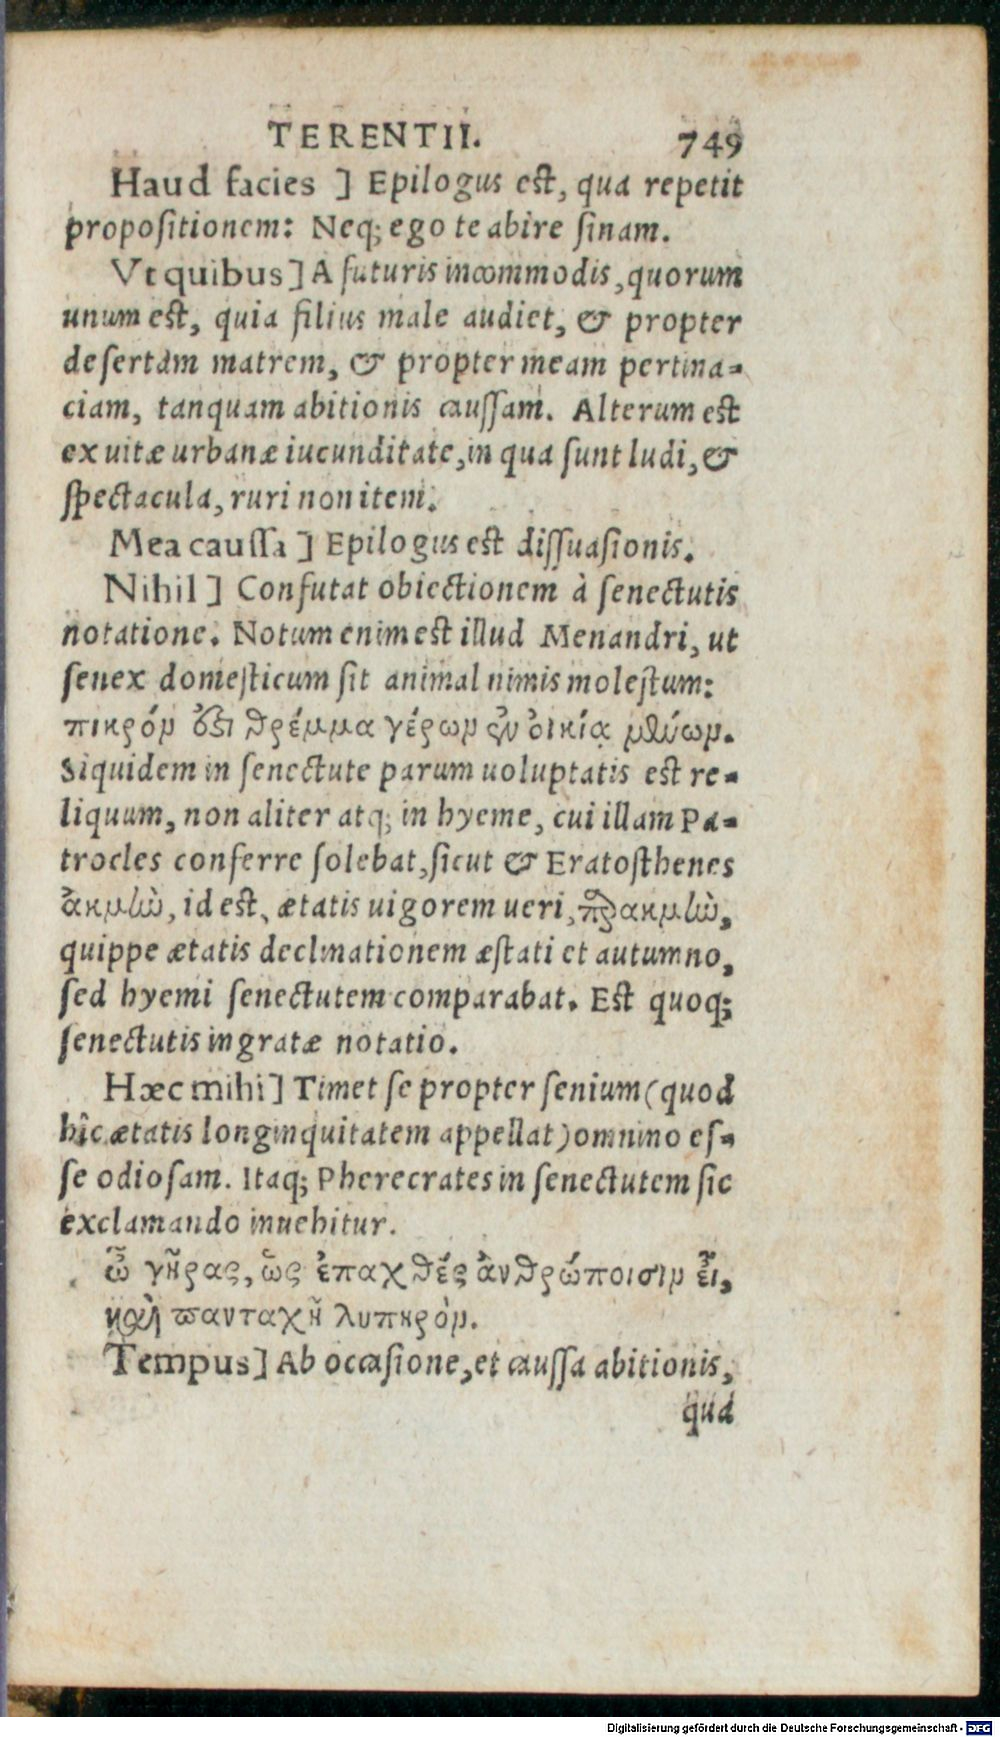 TERENTII. 749
Haud facies ] Epilogus est, qua repetit
propositionem: Neq; ego te abire sinam.
Vt quibus ] A futuris incommodis, quorum
unum est, quia filius male audiet, & propter
desertam matrem, & propter meam pertina-
ciam, tanquam abitionis caussam. Alterum est
ex uitæ urbanæ iucunditate, in qua sunt ludi, &
spectacula, ruri non item.
Mea caussa ] Epilogus est dissuasionis.
Nihil ] Confutat obiectionem à senectutis
notatione. Notum enim est illud Menandri, ut
senex domesticum sit animal nimis molestum:
πικρόν ἐστι θρέμμα γέρων ἐν οἰκίᾳ μένων.
Siquidem in senectute parum uoluptatis est re-
liquum, non aliter atq; in hyeme, cui illam Pa-
trocles conferre solebat, sicut & Eratosthenes
ἀκμὴν, id est, ætatis uigorem ueri, παρακμὴν,
quippe ætatis declinationem æstati et autumno,
sed hyemi senectutem comparabat. Est quoq;
senectutis ingratæ notatio.
Hæc mihi ] Timet se propter senium (quod
hîc ætatis longinquitatem appellat) omnino es-
se odiosam. Itaq; Pherecrates in senectutem sic
exclamando inuehitur.
ὦ γῆρας, ὡς ἐπαχθές ἀνθρώποισιν εἶ,
καὶ πανταχῆ λυπηρὸν.
Tempus ] Ab occasione, et caussa abitionis,
qua
Digitalisierung gefördert durch die Deutsche Forschungsgemeinschaft - DFG